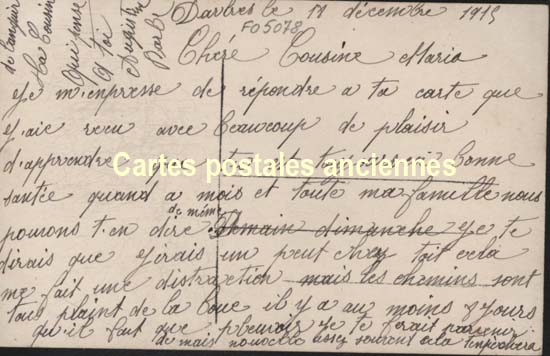 Darbres le 11 décembre 1915
FO5078
Chére Cousine Maria
Je m'enpresse de répondre a ta carte que
j'aie recu avec beaucoup de plaisir
d'apprendre que tu est toujours en bonne
santée quand a mois et toute ma famille nous
pouvons t'en dire de même Demain dimanche Je te
dirais que j'irais un peut chez toit cela
me fait une distraction mais les chemins sont
tous plaint de la boue il y a au moins 8 jours
qu'il fait que pleuvoir Je te ferait parvenir
de mais nouvelle assez souvent cela t'enpechera
de languir
ta Cousine
qui pense
a toi
Augustine
Cartes postales anciennes